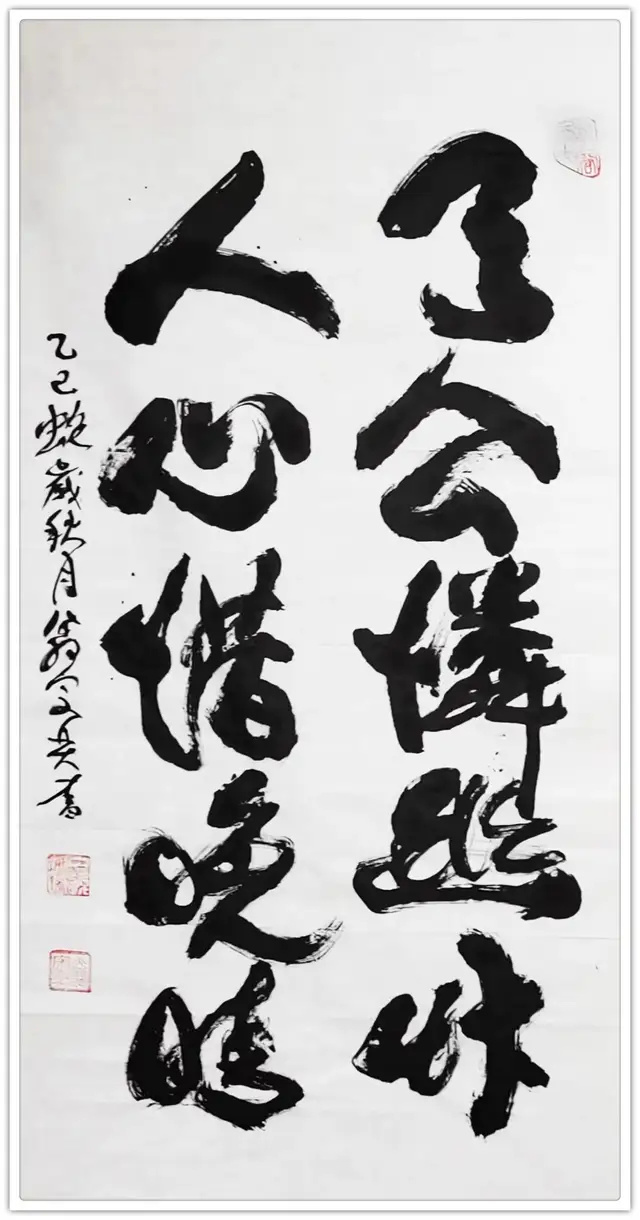 天公憐幽艸
人心惜晚晴
乙巳蛇歲秋月翁書